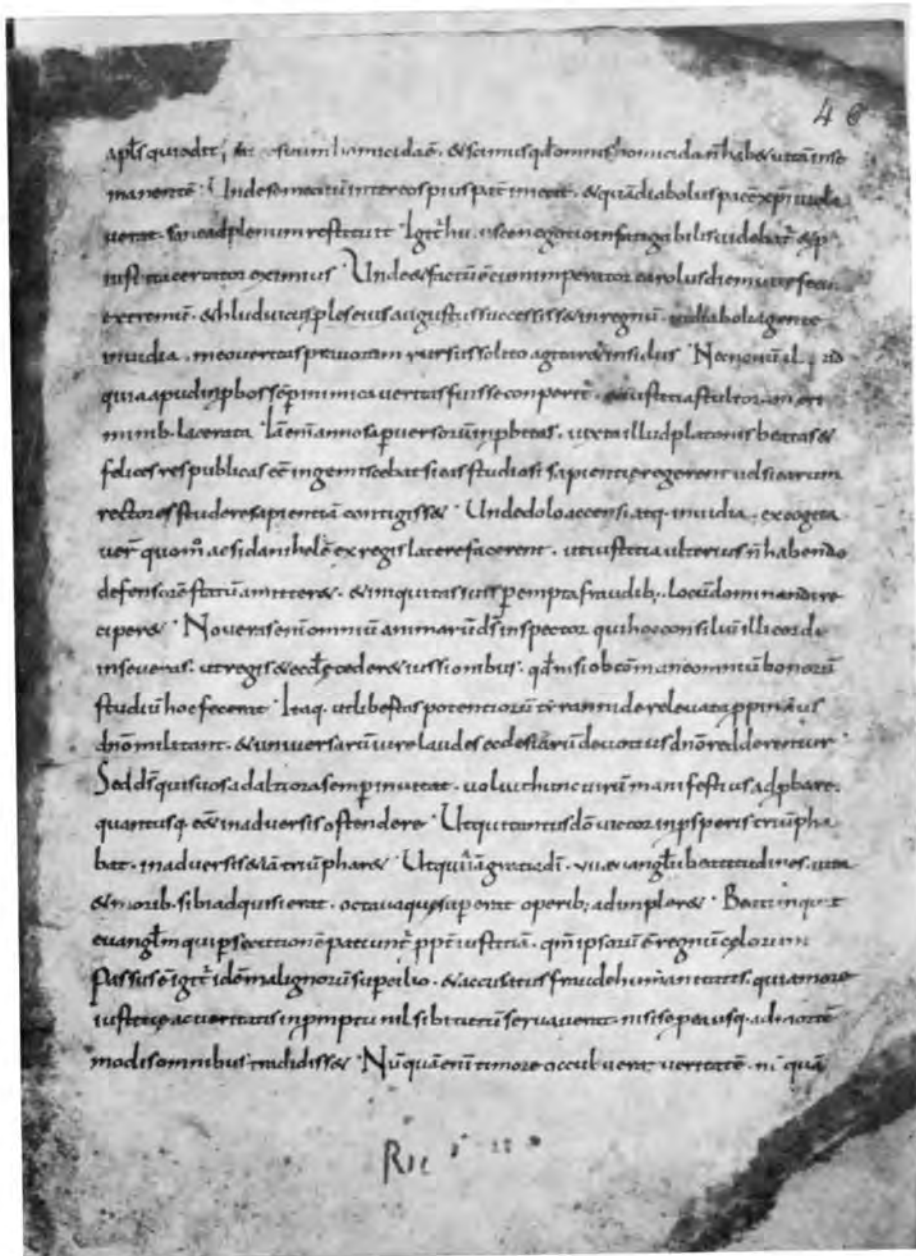 46
apłs qui odit, fratrem suum homicida ē. & scimus qđ omnis homicida ñ habet uitā in se
manentē. Unde semet ipsū inter eos pius pater iniecit. & quā diabolus pacē xp̄i uiola
uerat. sane ad plenum restituit. Igit̄ huiuscemodi negotio infatigabilis uidebat̄ & p
iustitia certator eximius. Unde & factū ē cum imperator carolus diem uitę fecit
extremū. & hluduuicus ples eius augustus successisset in regnū. diabolo agente
inuidia. me
quia apud inpbos sēp inimica ueritas fuisse conperit̄. & a iustitia stultorum cri
minib. lacerata. Iā enī annosa puersorū inpbitas. iuxta illud platonis beatas &
felices res publicas eē ingemiscebat si eas studiosi sapientię regerent uel si earum
rectores studere sapientiā contigisset. Unde dolo accensi atq. inuidia. excogita
uer̄ quom̊ ac si danihelē ex regis latere facerent. ut iustitia ulterius ñ habendo
defensorē statū amitteret. & iniquitas suis pempta fraudib; locū dominandi re
ciperet. Nouerat enī omniū animarū ds̄ inspector qui hoc consiliū illi cordi
inseuerat. ut regis & eccłę cederet iussionibus. qđ nisi ob cōmune omniū bonorū
studiū hoc fecerat. Itaq. ut libertas potentiorū tyrannide releuata ppinquius
dn̄o militaret. & uniuersarū uirę laudes ecclesiarū deuotius dn̄o redderentur.
Sed ds̄ qui suos ad altiora semp inuitat. uoluit hunc uirū manifestius adpbare.
quantusq. eēt in aduersis ostendere. Ut qui tantus dō uictor in psperis triūpha
bat. in aduersis etiā triūpharet. Ut qui iā gratia dī. vii. euanglii beatitudines. uita
& morib. sibi adquisierat. octaua quę supererat operib; adimpleret. Beati inquit
euanglm qui psecutionē patiunt̄ ppt̄ iustitiā. qm̄ ipsorū ē regnū celorum
Passus ē igit̄ idē malignorū supcilio. & accusatus fraude humanitatis. qui amore
iustitię ac ueritatis in pmptu nil sibi tutū seruauerat. nisi se pea usq. ad mortē
modis omnibus tradidisset. Nūquā enī timore occuluerat ueritatē. nūquā